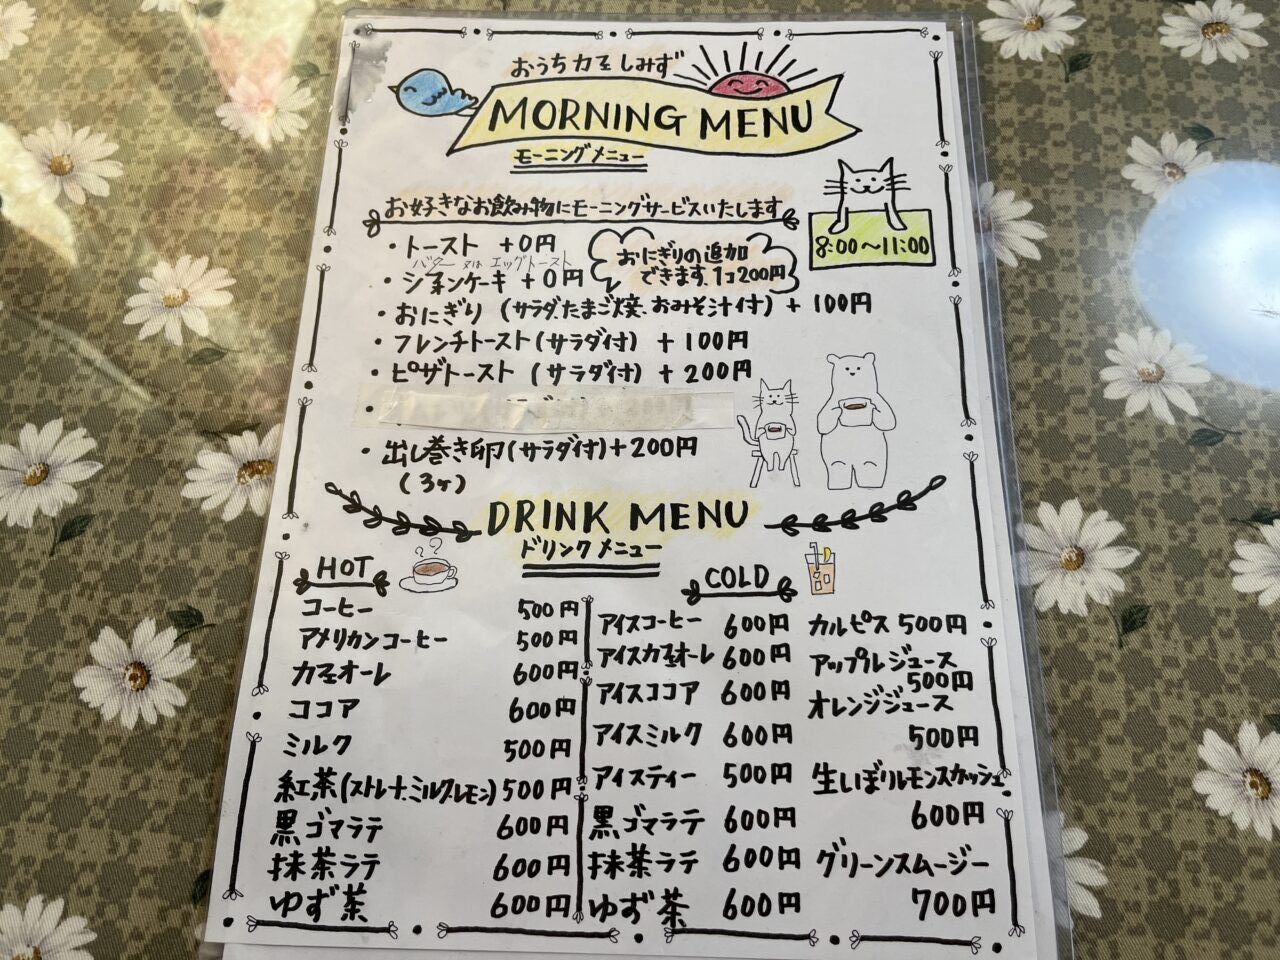 おうちカフェしみず
MORNING MENU
モーニングメニュー
8:00〜11:00
お好きなお飲み物にモーニングサービスいたします
・トースト +0円
バター 又は エッグトースト
・シフォンケーキ +0円
おにぎりの追加
できます、1コ200円
・おにぎり(サラダ、たまご焼、おみそ汁付) + 100円
・フレンチトースト(サラダ付) + 100円
・ピザトースト (サラダ付) + 200円
・
・出し巻き卵(サラダ付)+200円
(3ヶ)
DRINK MENU
ドリンクメニュー
HOT
コーヒー 500円
アメリカンコーヒー 500円
カフェオーレ 600円
ココア 600円
ミルク 500円
紅茶(ストレート、ミルク、レモン) 500円
黒ゴマラテ 600円
抹茶ラテ 600円
ゆず茶 600円
COLD
アイスコーヒー 600円
アイスカフェオーレ 600円
アイスココア 600円
アイスミルク 600円
アイスティー 500円
黒ゴマラテ 600円
抹茶ラテ 600円
ゆず茶 600円
カルピス 500円
アップルジュース
500円
オレンジジュース
500円
生しぼりレモンスカッシュ
600円
グリーンスムージー
700円